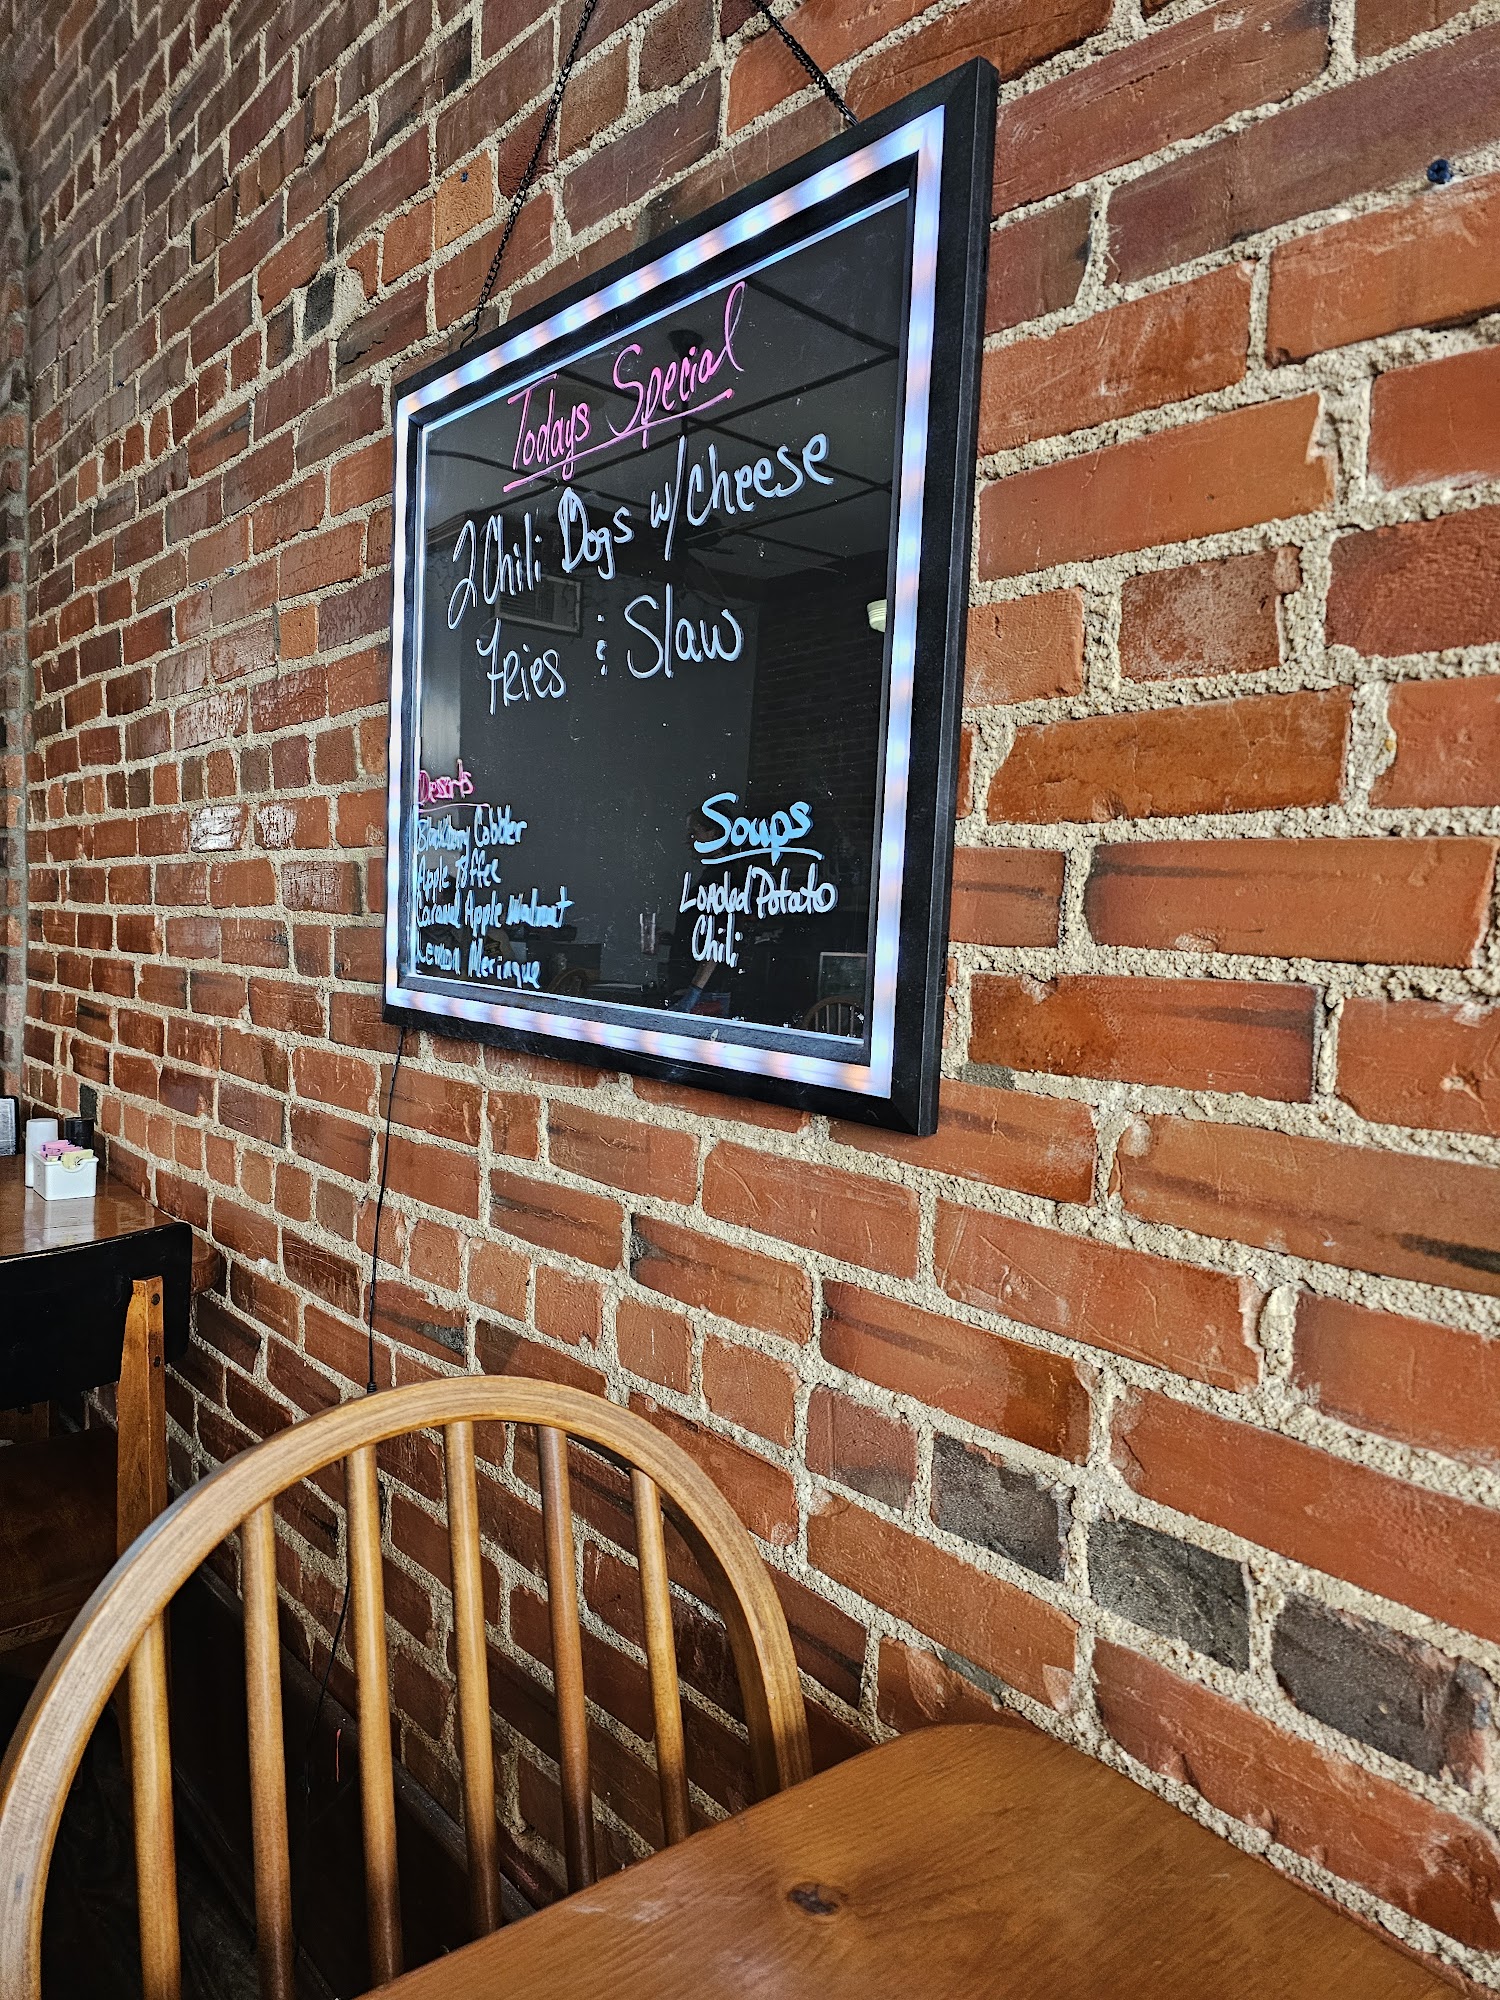 Todays Special
2 Chili Dogs w/ Cheese
Fries & Slaw
Desserts
Blackberry Cobbler
Apple Toffee
Caramel Apple Walnut
Lemon Meringue
Soups
Loaded Potato
Chili